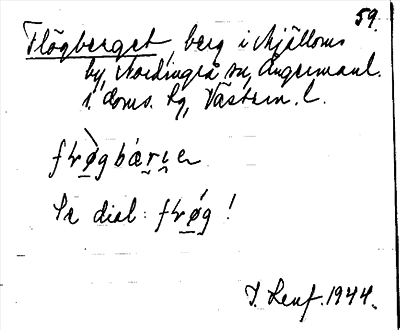 59.
Flögberget, berg i Mjälloms
by, Nordingrå sn, Ångermanl.
s. doms. sg, Västern. l.
fløgbärıe
Se dial: fløg!
1944.